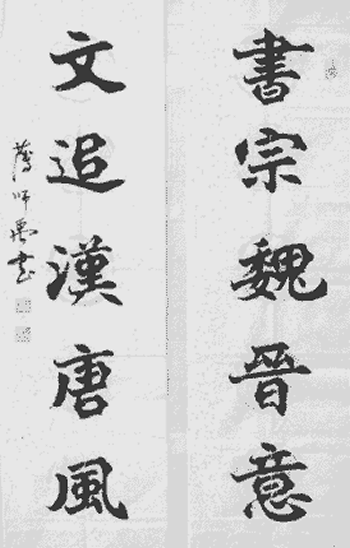 書宗魏晉意
文追漢唐風